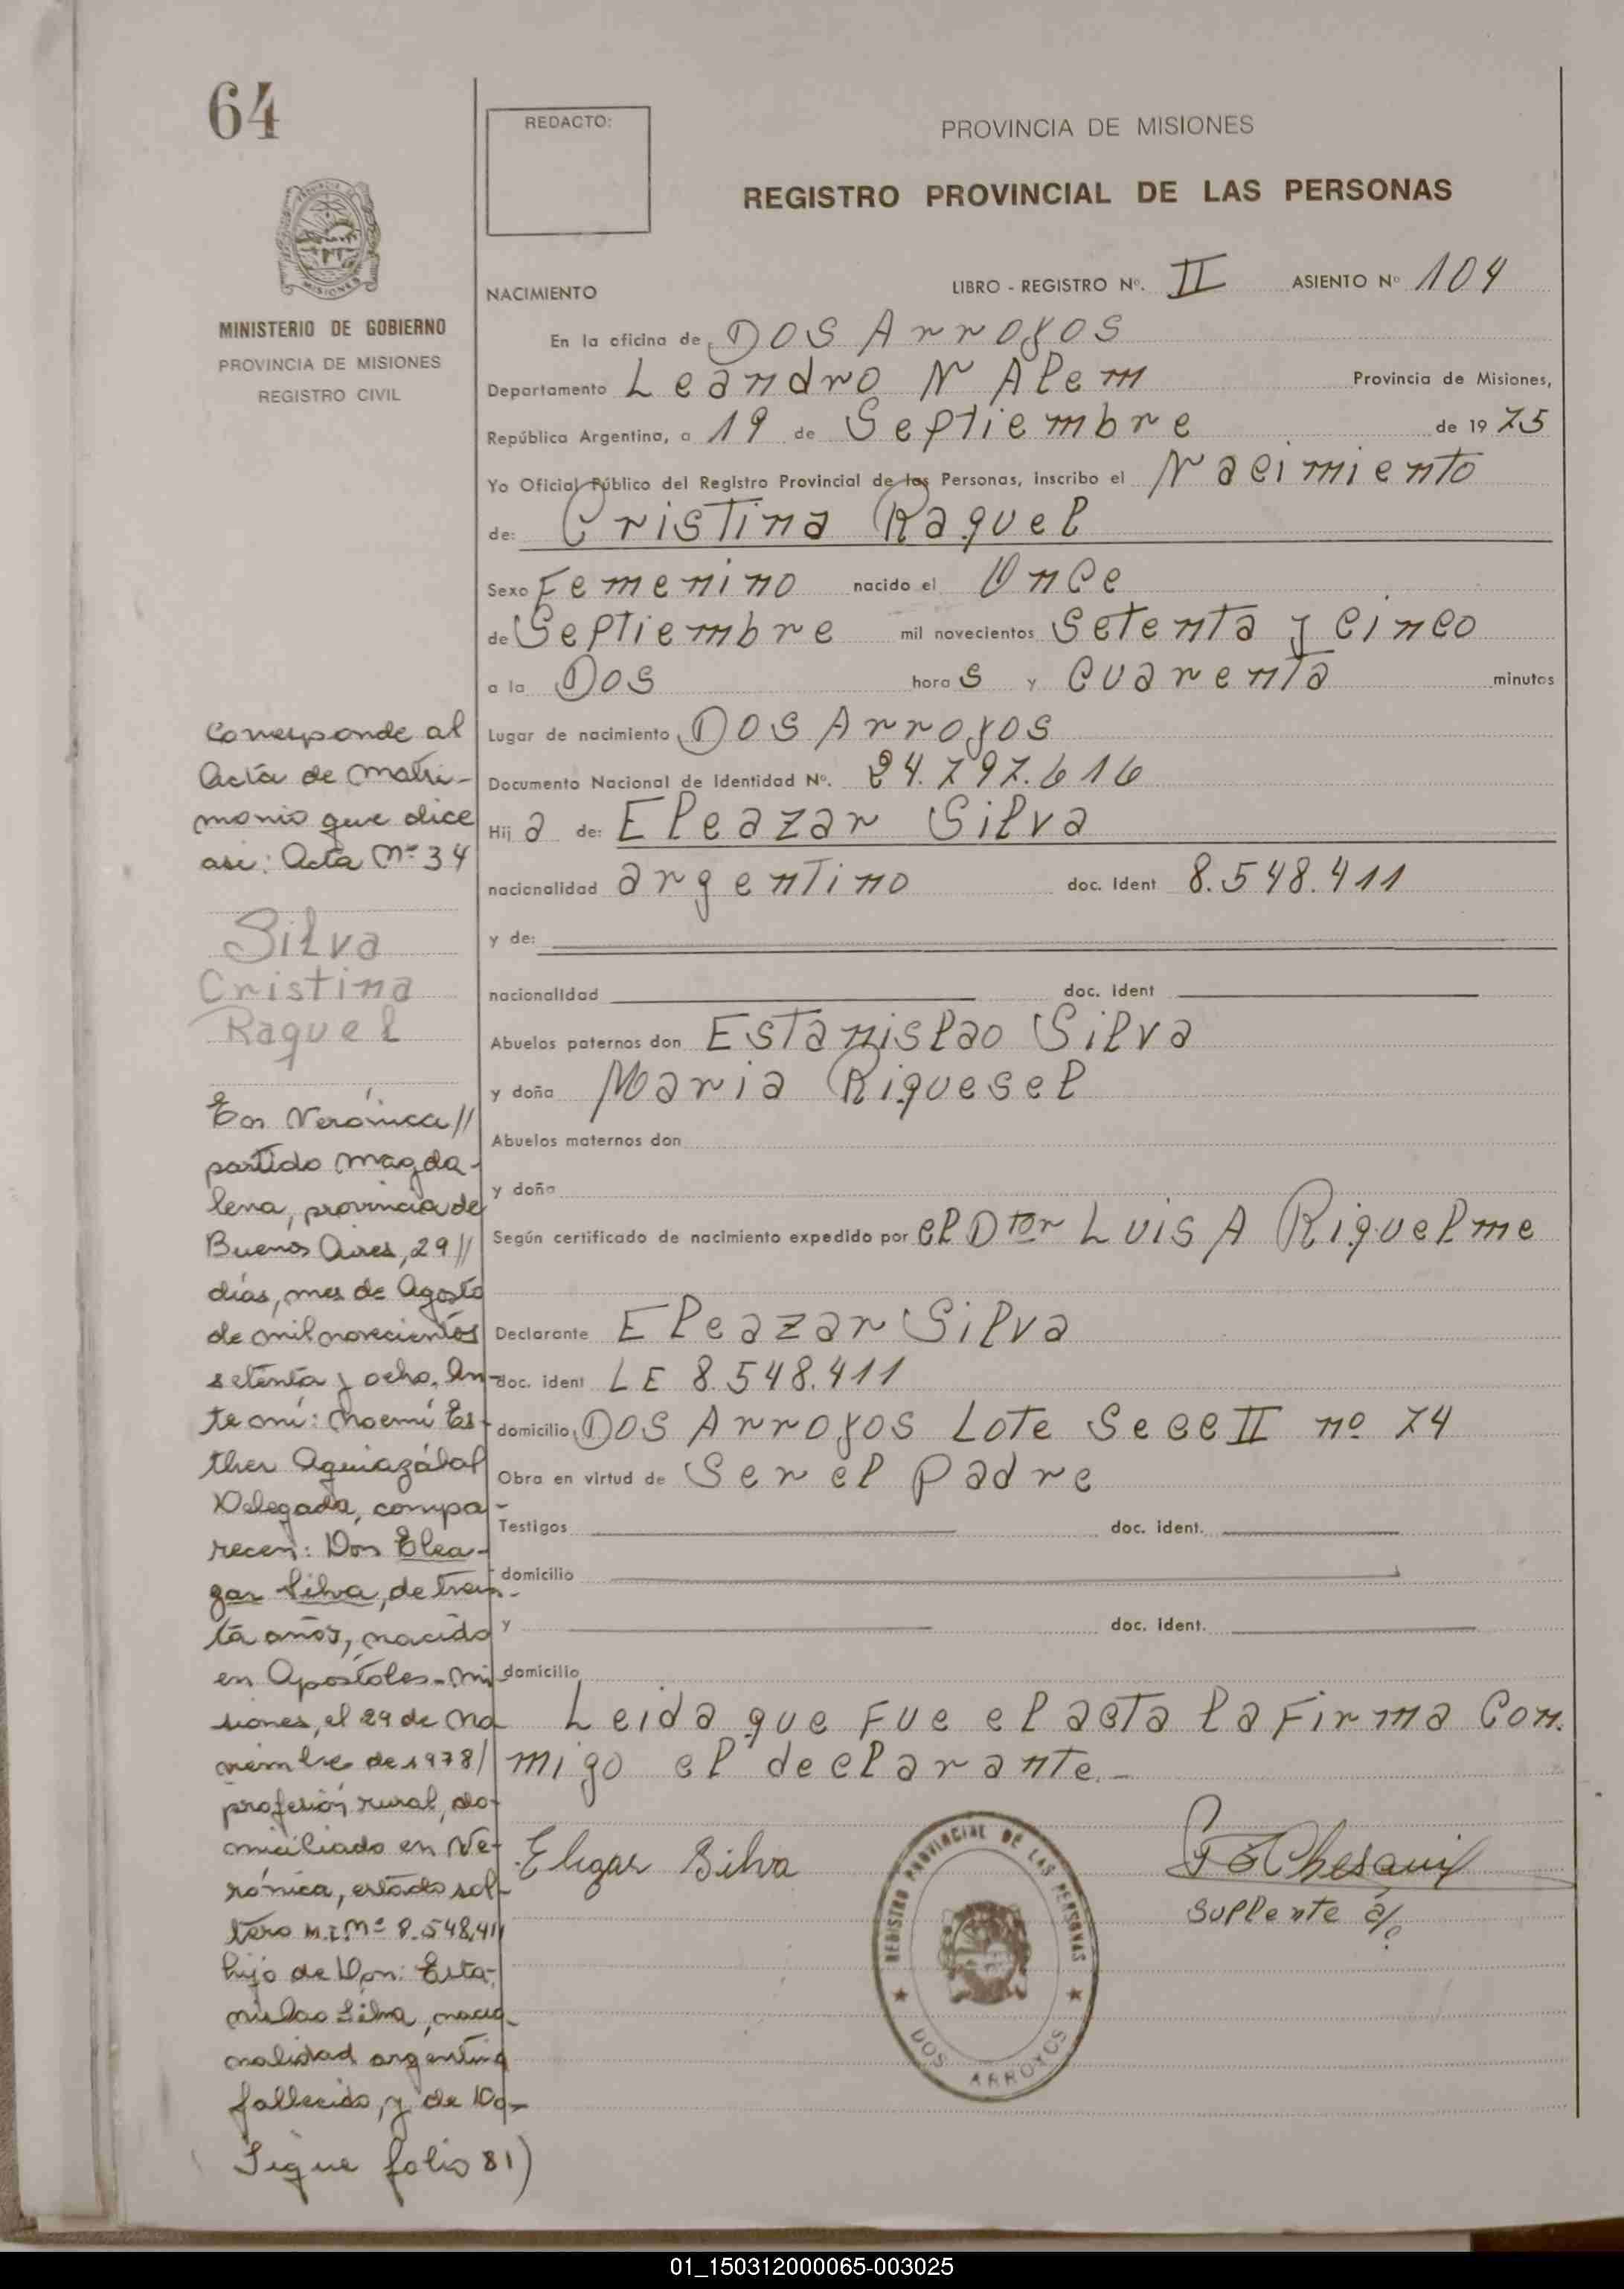 64
REDACTO:
PROVINCIA DE MISIONES
REGISTRO PROVINCIAL DE LAS PERSONAS
MISIONES
MINISTERIO DE GOBIERNO
PROVINCIA DE MISIONES
REGISTRO CIVIL
NACIMIENTO LIBRO - REGISTRO Nº. II ASIENTO Nº 104
En la oficina de DOS Arroyos
Departamento Leandro N Alem Provincia de Misiones,
República Argentina, a 19 de Septiembre de 1975
Yo Oficial Público del Registro Provincial de las Personas, inscribo el Nacimiento
de: Cristina Raquel
Sexo Femenino nacido el Once
de Septiembre mil novecientos Setenta y cinco
a la Dos horas y Cuarenta minutos
Lugar de nacimiento DOS Arroyos
Documento Nacional de Identidad Nº. 24.797.616
Hija de: Eleazar Silva
nacionalidad argentino doc. Ident 8.548.411
y de:
nacionalidad doc. ident
Abuelos paternos don Estanislao Silva
y doña Maria Riquesel
Abuelos maternos don
y doña
Según certificado de nacimiento expedido por el Dtor Luis A Riquelme
Declarante Eleazar Silva
doc. ident LE 8.548.411
domicilio DOS Arroyos Lote Secc II nº 74
Obra en virtud de Ser el padre
Testigos doc. ident.
domicilio
y doc. ident.
domicilio
Leida que fue el acta la firma con
migo el declarante.-
Eligar Silva
Suplente a/c
REGISTRO PROVINCIAL DE LAS PERSONAS
DOS ARROYOS
Corresponde al
Acta de matri-
monio que dice
asi: Acta Nº 34
Silva
Cristina
Raquel
En Verónica//
partido Magda-
lena, provincia de
Buenos Aires, 29//
días, mes de Agosto
de mil novecientos
setenta y ocho, An-
te mí: Noemí Es-
ther Aguiazábal
Delegada, compa-
recen: Don Elea-
zar Silva, de trein-
ta años, nacido
en Apóstoles-Mi
siones, el 29 de No
viembre de 1978/
profesión rural, do-
miciliado en Ve-
rónica, estado sol-
tero M.I.Nº 8.548.411
hijo de Don: Esta-
nislao Silva, nacio-
nalidad argentina
fallecido, y de Do-
Sigue folio 81)
01_150312000065-003025